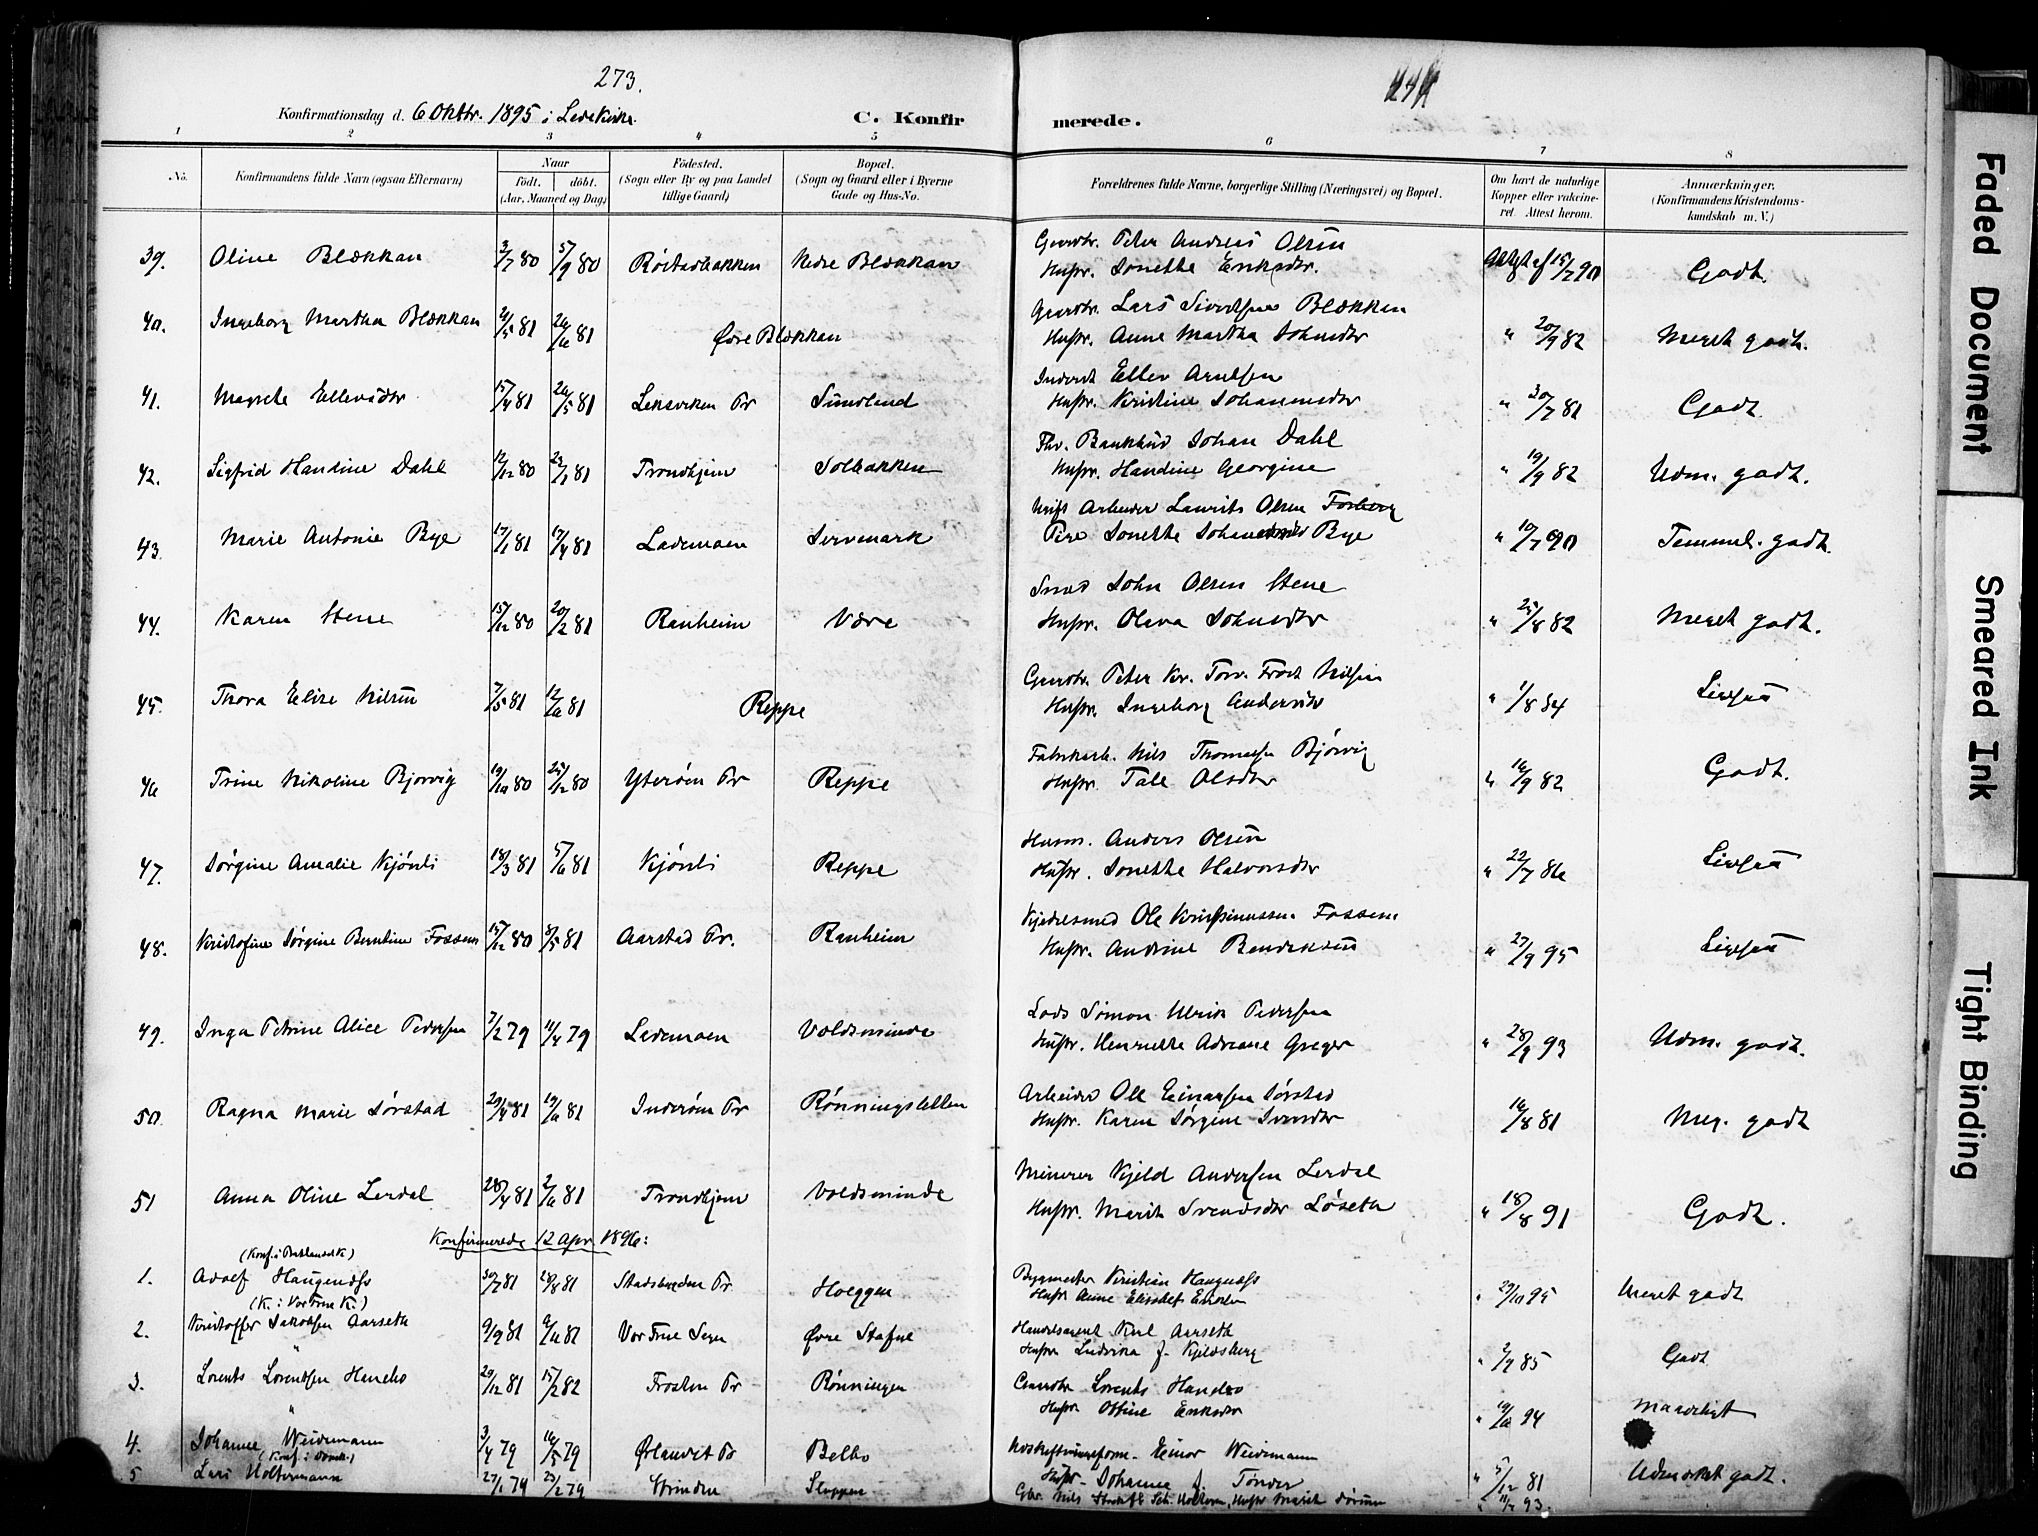 273.
Konfirmationsdag d. 6 Oktbr. 1895 i Lade Kirke.
C. Konfirmerede.
1 2 3 4 5 6 7 8
No. Konfirmandens fulde Navn (ogsaa Efternavn) Naar født. døbt. (Aar, Maaned og Dag) Fødested. (Sogn eller By og paa Landet tillige Gaard) Bopæl. (Sogn og Gaard eller i Byerne Gade og Hus-No. Forældrenes fulde Navne, borgerlige Stilling (Næringsvei) og Bopæl. Om havt de naturlige Kopper eller vakcineret. Attest herom. Anmærkninger. (Konfirmandens Kristendomskundskab m. V.)
39. Oline Blækkan 3/7 80 5/9 80 Røstadbakken Nedre Blækkan Gaardbr. Peter Andreas Olsen
Hustr. Jonetta Eriksdtr. Attest af 15/7 90 Godt.
40. Ingeborg Martha Blækkan /5 81 26/6 81 Øvre Blækkan Gaardbr. Lars Sivertsen Blækkan
Hustr. Anne Martha Johnsdtr " 20/9 82 Meget godt.
41. Magrete Ellevsdtr 15/4 81 26/5 81 Leksviken Pr Sundland Inderst Ellev Arntsen
Hustr. Kristine Johannesdtr " 30/7 81 Godt
42. Sigfrid Handine Dahl 12/12 80 23/1 81 Trondhjem Solbakken Fhv. Bankbud Johan Dahl
Hustr. Handine Georgine " 19/9 82 Udm. godt.
43. Marie Antonie Bye 17/1 81 17/4 81 Lademoen Arbeider Laurits Olsen Forberg
Pige Jonetta Bye " 10/7 90 Temmel. godt.
44. Karen Stene 15/12 80 20/2 81 Ranheim Være Smed John Olsen Stene
Hustr. Olava Johnsdtr " 25/8 82 Meget godt.
45. Thora Elise Nilsen 7/5 81 12/6 81 Reppe Gaardbr. Peter Kr. Nilsen
Hustr. Ingeborg Andersdtr " 1/8 84 Ligesaa
46 Trine Nikoline Bjørvig 19/10 80 25/12 80 Yterøen Pr Reppe Fabrikarb. Nils Thomassen Bjørvig
Hustr. Tale Olsdtr " 16/9 82 Godt.
47. Jørgine Amalie Kjønli 18/3 81 5/6 81 Kjønli Reppe Husm. Anders Olsen
Hustr. Jonetta Halvorsdtr " 22/7 86 Ligesaa
48. Kristofine Jørgine Berntine Fossem 15/12 80 8/5 81 Aarstad Pr. Ranheim Kjedelsmed Ole Kristinussen Fossem
Hustr. Andrine " 27/9 95 Ligesaa
49. Inga Petrine Alice Pedersen 7/2 79 11/4 79 Lademoen Voldsminde Lods Simon Ulrik Pedersen
Hustr. Henriette Adriane Greger " 28/9 93 Udm. godt.
50. Ragna Marie Sørstad 29/4 81 19/6 81 Inderøen Pr Rønningsletten Arbeider Ole Einarsen Sørstad
Hustr. Karen Jørgine Svendsdtr 16/8 81 Meg. godt
51 Anna Oline Lerdal 28/4 81 2/6 81 Trondhjem Voldsminde Minerer Kjeld Andersen Lerdal
Hustr. Marit Svendsdtr Løseth " 18/8 91 Godt.
Konfirmerede 12 Apr. 1896:
1. (Konf. i Bakklandet K)
Adolf Haugnæss 30/7 81 28/8 81 Stadsbygden Pr. Hoeggen Bygmester Kristian Haugnæss
Hustr Anne Elisabet " 29/10 95 Meget godt
2. (K. i Vor Frue K.)
Kristoffer Jakobsen Aarseth 9/9 81 81 Vor Frue Sogn Øvre Stafne Handelsagent Karl Aarseth
Hustr Ludvika f. Kjeldsberg " 2/9 85 Godt
3. Lorents Lorentsen Handbo 29/12 81 15/2 82 Frosten Pr Rønningen Gaardbr Lorents Handbo
Hustr Oline Eriksdtr " 19/10 94 Maadeligt
4. Johanne Weidemann 3/4 79 16/5 79 Ørlandet Pr Belbo Einar Weidemann
Hustr. Johanne f. Tønder " 5/12 81 Udmerket godt.
5 Lars Holtermann 27/1 79 23/2 79 Strinden Sluppen